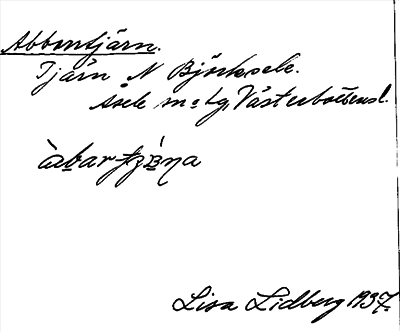 Abborrtjärn.
Tjärn N Björksele.
Åsele m o lg, Västerbottens l.
àbartjä̀ṇa
Lisa Lidberg 1937.